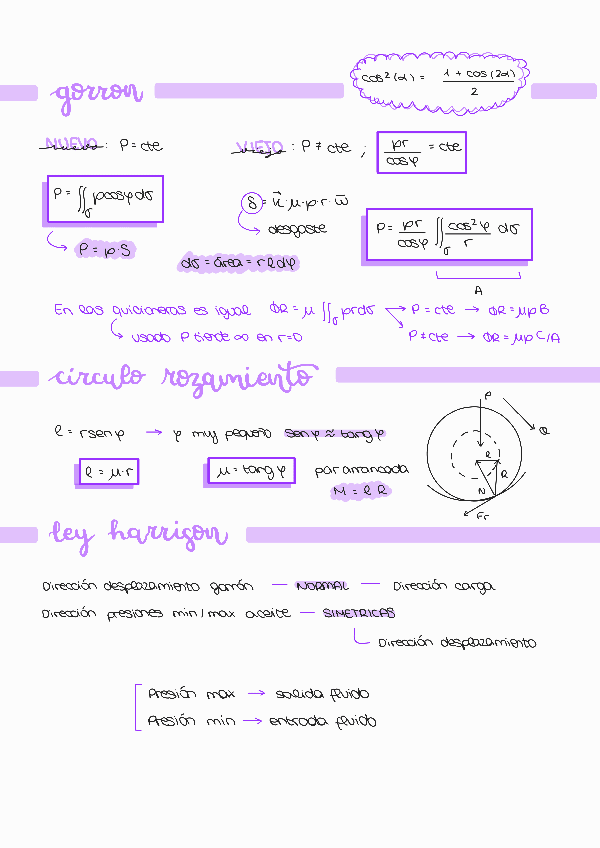 cos²(α) = (1 + cos(2α))/2
gorron
NUEVO : P = cte
VIEJO : P ≠ cte ; pr/cosφ = cte
P = ∬σ pcosφ dσ
P = p·S
δ = K·μ·p·r·ω
desgaste
dσ = área = r l dφ
P = pr/cosφ ∬σ cos²φ/r dσ
A
En las quicioneras es igual ΦR = μ ∬σ prdσ → P = cte → ΦR = μpB
usado P tiende ∞ en r=0
P ≠ cte → ΦR = μp C/A
círculo rozamiento
ρ = r sen φ → φ muy pequeño sen φ ≈ tang φ
ρ = μ·r
μ = tang φ
par arrancada
M = ρ R
P
ρ
R
N
Fr
ley harrison
Dirección desplazamiento gorrón — NORMAL — Dirección carga
Dirección presiones min/max aceite — SIMETRICAS
Dirección desplazamiento
Presión max → salida fluido
Presión min → entrada fluido